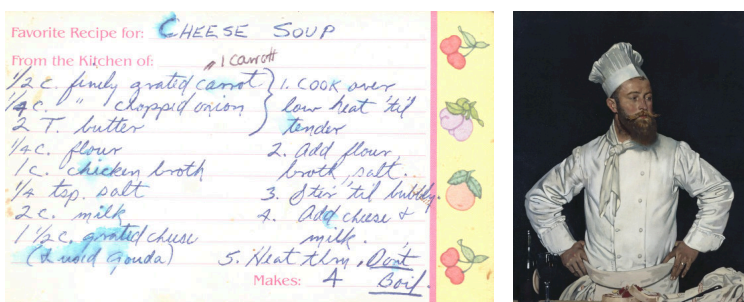 Favorite Recipe for: CHEESE SOUP
From the Kitchen of: 1 carrott
1/2 c. finely grated carrot
1/4 c. " choppid onion
2 T. butter
1/4 c. flour
1 c. chicken broth
1/4 tsp. salt
2 c. milk
1 1/2 c. grated cheese
(I used gouda)
1. Cook over
low heat 'til
tender
2. Add flour,
broth, salt.
3. Stir 'til bubbly.
4. Add cheese &
milk.
5. Heat thru. Don't
Boil.
Makes: 4